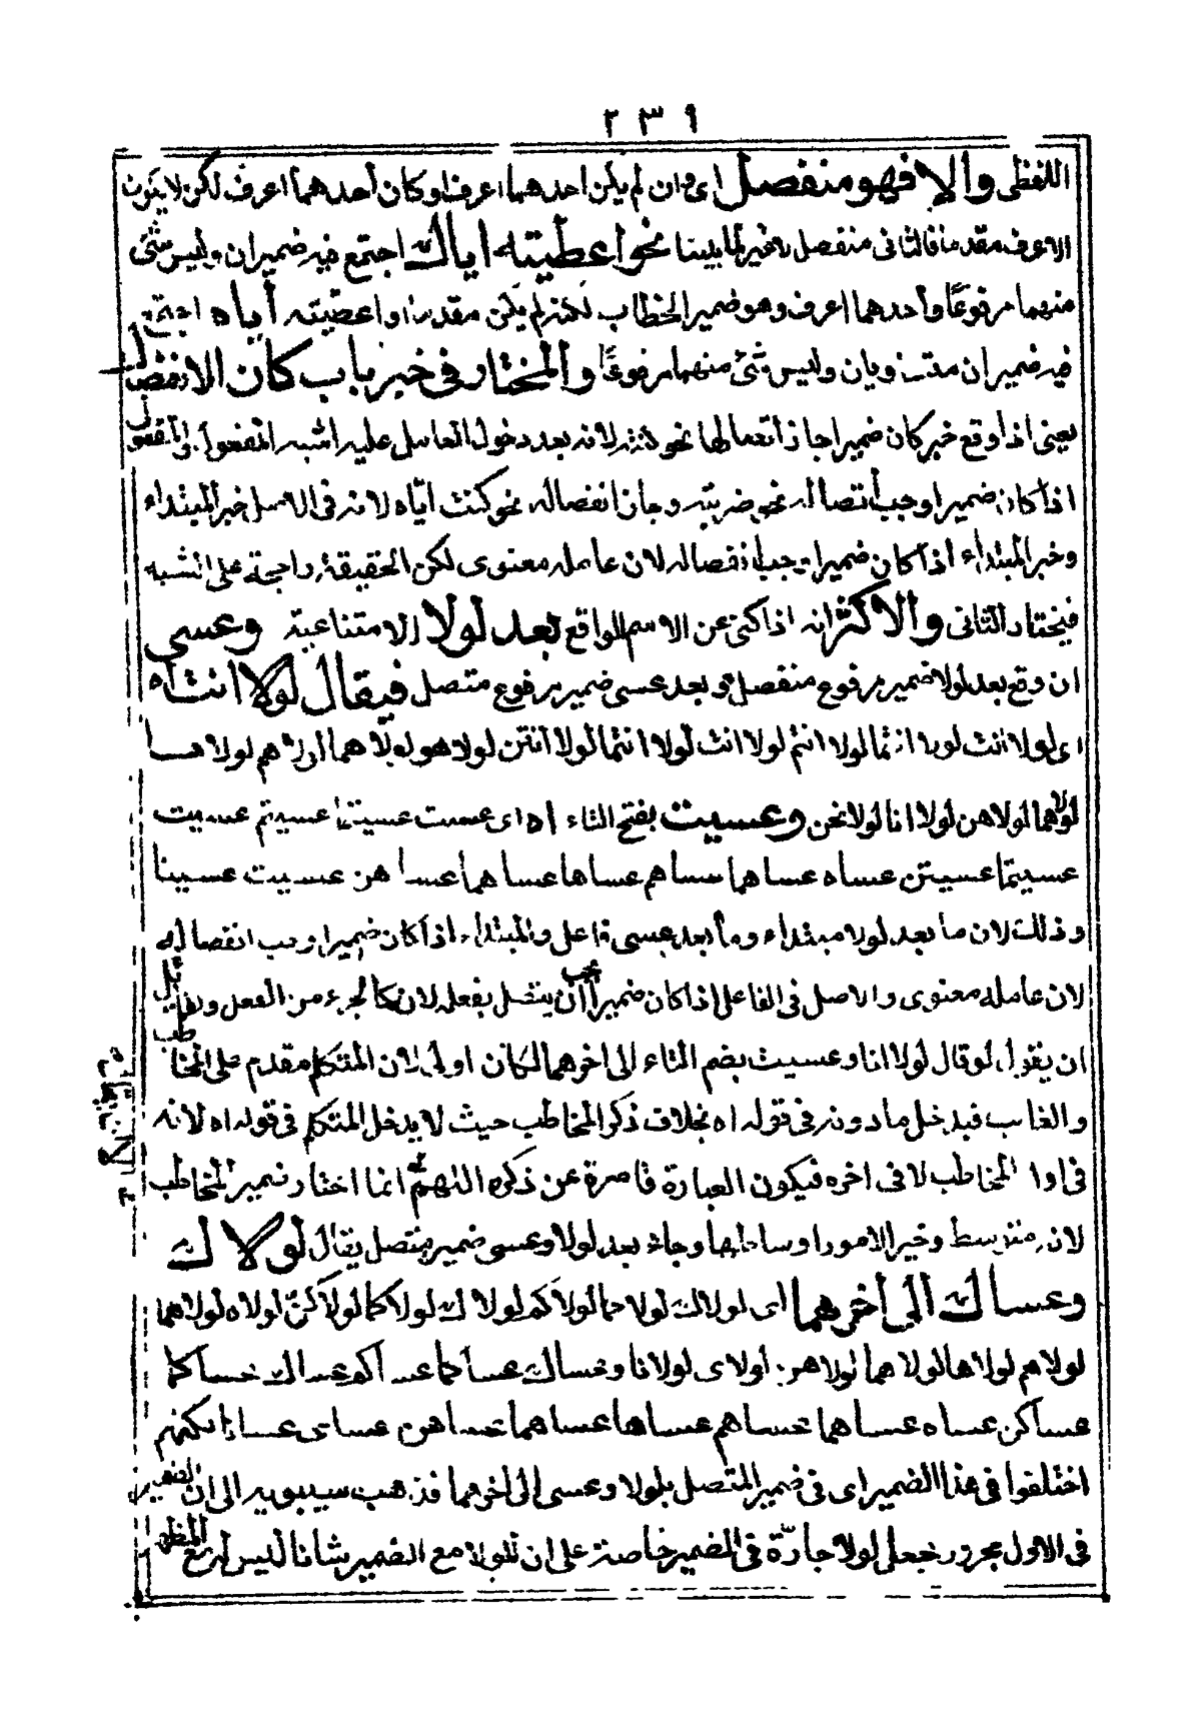 ٢٣٩
اللفظى والا فهو منفصل اى وان لم يكن احدهما اعرف او كان أحدهما اعرف لكن لا يكون
الاعرف مقدما فالثانى منفصل لاغير لما بينا نحو اعطيته اياك اجتمع فيه ضميران وليس شئ
منهما مرفوعًا وأحدهما اعرف وهو ضمير الخطاب لكنه لم يكن مقدما او اعطيته أياه اجتمع
فيه ضميران متساويان وليس شئ منهما مرفوعًا والمختار فى خبر باب كان الانفصال
يعنى اذا وقع خبر كان ضميرا جاز اتصالها نحو كنته لانه بعد دخول العامل عليه اشبه المفعول والمفعول
اذا كان ضميرا وجب أتصاله نحو ضربته وجاز انفصاله نحو كنت ايّاه لانه فى الاصل خبر المبتداء
وخبر المبتداء اذا كان ضميرا وجب انفصاله لان عامله معنوى لكن الحقيقة راجحة على الشبه
فيختار الثانى والاكثر انه اذا كنى عن الاسم الواقع بعد لولا الامتناعية وعسى
ان وقع بعد لولا ضمير مرفوع منفصل وبعد عسى ضمير مرفوع متصل فيقال لولا انت اه
اى لولا انت لولا انتما لولا انتم لولا انت لولا انتما لولا أنتن لولا هو لولا هما لولا هم لولا هى
لولا هما لولا هن لولا انا لولا نحن وعسيت بفتح التاء اه اى عسيت عسيتما عسيتم عسيت
عسيتما عسيتن عساه عساهما عساهم عساها عساهما عسا هن عسيت عسينا
وذلك لان ما بعد لولا مبتداء وما بعد عسى فاعل والمبتداء اذا كان ضميرا وجب انفصاله
لان عامله معنوى والاصل فى الفاعل اذا كان ضميرا يجب أن يتصل بفعله لانه كالجزء من الفعل ولقائل
ان يقول لو قال لولا انا وعسيت بضم التاء الى اخرهما لكان اولى لان المتكلم مقدم على المخاطب
والغائب فيدخل ما دونه فى قوله اه بخلاف ذكر المخاطب حيث لا يدخل المتكلم فى قوله اه لانه
فى اول المخاطب لا فى اخره فيكون العبارة قاصرة عن ذكره اللهم انما اختار ضمير المخاطب
لانه متوسط وخير الامور اوساطها وجاء بعد لولا وعسى ضمير متصل يقال لولاك
وعساك الى أخرهما اى لولاك لولا كما لولا كم لولاك لولا كما لولا كنّ لولاه لولا هما
لولا هم لولا ها لولا هما لولا هن لولاى لولانا وعساك عساكما عساكم عساك عساكما
عساكن عساه عساهما عساهم عساها عساهما عسا هن عساى عسانا لكنهم
اختلفوا فى هذا الضمير اى فى ضمير المتصل بلولا وعسى الى اخرهما فذهب سيبويه الى ان الضمير
فى الاول مجرور فجعل لولا جارّة فى المضمر خاصة على ان للولا مع الضمير شانا ليس له مع المظهر